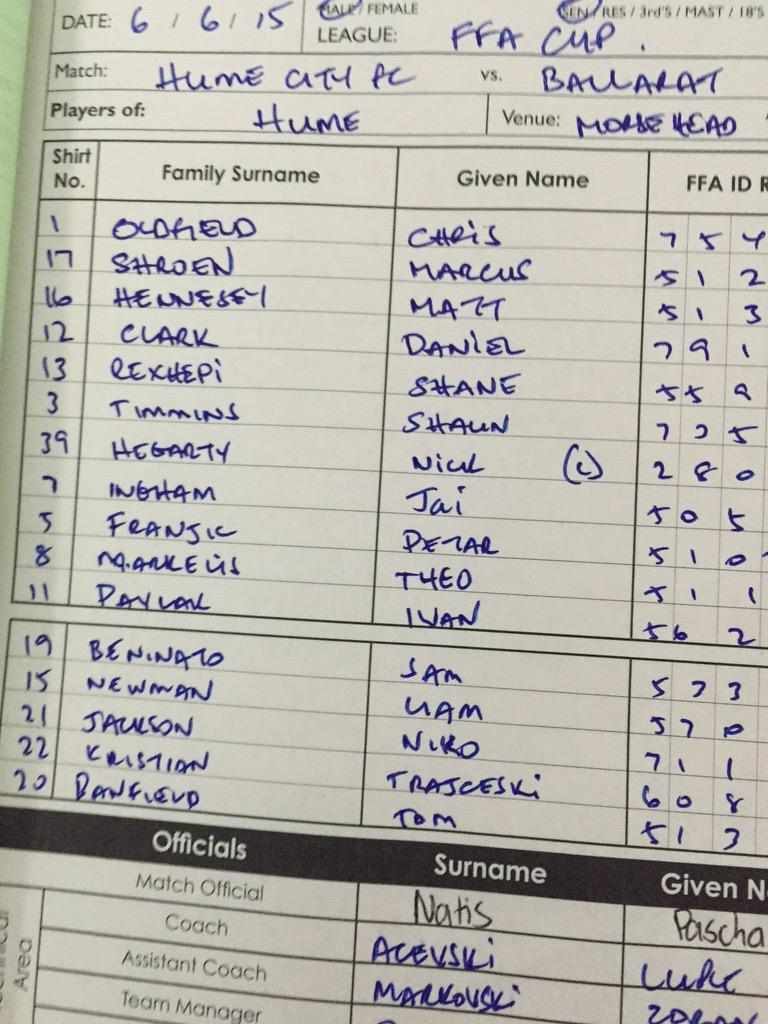 DATE: 6 / 6 / 15 MALE / FEMALE SEN / RES / 3rd'S / MAST / 18'S
LEAGUE: FFA CUP.
Match: HUME CITY FC vs. BALLARAT
Players of: HUME Venue: MORSHEAD
Shirt No. Family Surname Given Name FFA ID
1 OLDFIELD CHRIS 7 5 4
17 SHROEN MARCUS 5 1 2
16 HENNESEY MATT 5 1 3
12 CLARK DANIEL 7 9 1
13 REXHEPI SHANE 5 5 9
3 TIMMINS SHAUN 7 2 5
39 HEGARTY NICK (C) 2 8 0
7 INGHAM Jai 5 0 5
5 FRANJIC PETAR 5 1 0
8 MARKELIS THEO 5 1 1
11 PAVLAK IVAN 5 6 2
19 BENINATO SAM 5 7 3
15 NEWMAN LIAM 5 7 0
21 JACKSON NIKO 7 1 1
22 KRISTIAN TRAJCESKI 6 0 8
20 BANFIELD TOM 5 1 3
Officials Surname Given N
Match Official Natis Pascha
Coach ACEVSKI
Assistant Coach MARKOVSKI ZORAN
Team Manager
Area